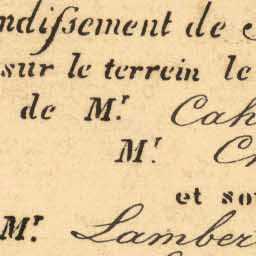 ndissement de
sur le terrein le
de M.r Cah
M.r C
et so
M.r Lamber